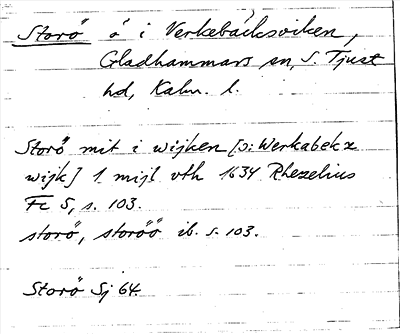 Storö ö i Verkebäcksviken,
Gladhammars sn, S. Tjust
hd, Kalm. l.
Storö mit i wijken [ɔ: Werkabek x
wijk] 1. mijl vth 1634 Rhezelius
Fc 5, s. 103.
storö, storöö ib. s. 103.
Storö Sj 64.